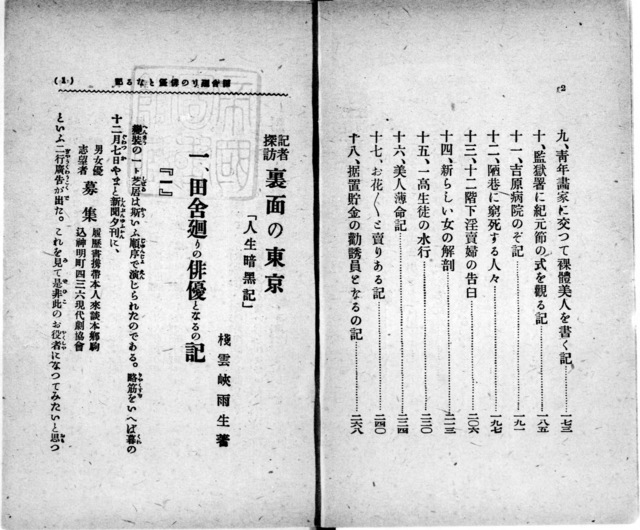 2
九、靑年畵家に交つて裸體美人を書く記……一七三
十、監獄署に紀元節の式を觀る記……一八五
十一、吉原病院のぞ記……一九一
十二、陋巷に窮死する人々……一九七
十三、十二階下淫賣婦の告白……二〇六
十四、新らしい女の解剖……二一三
十五、一高生徒の水行……二三〇
十六、美人薄命記……二三四
十七、お花〳〵と賣りある記……二四〇
十八、据置貯金の勸誘員となるの記……二六八
田舍廻りの俳優となる記
(1)
記者探訪 裏面の東京
「人生暗黑記」
棧雲峽雨生著
一、田舍廻りの俳優となるの記
『一』
變裝の一ト芝居は斯いふ順序で演じられたのである。略筋をいへば暮の
十二月七日やまと新聞夕刊に、
男女優志望者 募集 履歷書携帶本人來談本鄕駒込神明町四三六現代劇協會
といふ二行廣告が出た。これを見て是非此のお役者になつてみたいと思つ